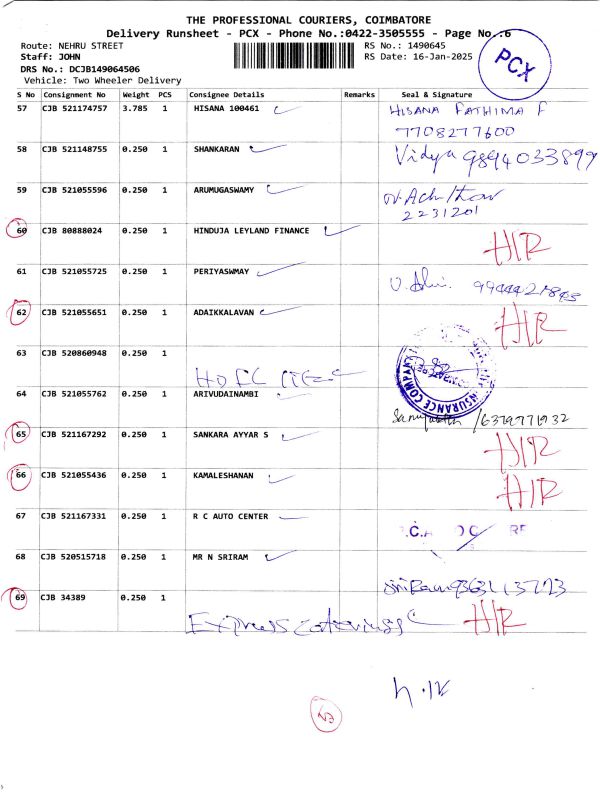 THE PROFESSIONAL COURIERS, COIMBATORE
Delivery Runsheet - PCX - Phone No.:0422-3505555 - Page No.:6
Route: NEHRU STREET RS No.: 1490645
Staff: JOHN RS Date: 16-Jan-2025
DRS No.: DCJB149064506
Vehicle: Two Wheeler Delivery
PCX
S No Consignment No Weight PCS Consignee Details Remarks Seal & Signature
57 CJB 521174757 3.785 1 HISANA 100461 HISANA FATHIMA F
7708277600
58 CJB 521148755 0.250 1 SHANKARAN Vidya 9894033899
59 CJB 521055596 0.250 1 ARUMUGASWAMY
2231201
60 CJB 80888024 0.250 1 HINDUJA LEYLAND FINANCE H/R
61 CJB 521055725 0.250 1 PERIYASWMAY
62 CJB 521055651 0.250 1 ADAIKKALAVAN H/R
63 CJB 520860948 0.250 1
HDFC
INSURANCE COMPANY
64 CJB 521055762 0.250 1 ARIVUDAINAMBI
65 CJB 521167292 0.250 1 SANKARA AYYAR S H/R
66 CJB 521055436 0.250 1 KAMALESHANAN H/R
67 CJB 521167331 0.250 1 R C AUTO CENTER
68 CJB 520515718 0.250 1 MR N SRIRAM
69 CJB 34389 0.250 1 H/R
Express